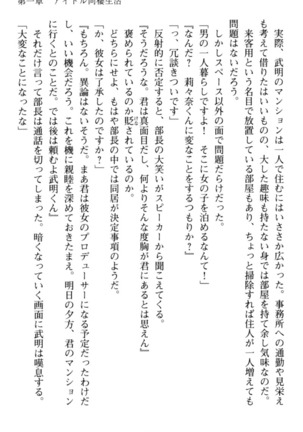 第一章　アイドル同棲生活
実際、武明のマンションは一人で住むにはいささか広かった。会社への通勤や見栄え
も考えて借りたはいいものの、大した趣味も持たない身では部屋を持て余し気味なのだ。
来客用という名目で放置している部屋もあり、ちょっと掃除すれば住人が一人増えても
問題はないだろう。
しかしスペース以外の面で問題だらけだった。
「男の一人暮らしですよ！　そこに女の子を泊めるなんて！」
『なんだ？　莉々奈くんに変なことをするつもりか？』
「っ、冗談きついです」
反射的に否定すると、部長の大笑いがスピーカーから聞こえてくる。
『そうだろうな。君は真面目だし、何よりそんな度胸が君にあるとは思えん』
褒められているのか貶されているのか。
どちらにせよ、もはや部長の中では同居が決定事項のようだ。
「彼女は了承したのですか？」
『もちろん。異論はないそうだ。まあ君は彼女のプロデューサーになる予定だったわけだ
し、いい機会だろう。これを機に親睦を深めておきたまえ。明日の夕方、君のマンション
に行くとのことだ。では後は頼むよ武明くん』
それだけ言って部長は通話を切ってしまった。暗くなっていく画面に武明は嘆息する。
「大変なことになったな」